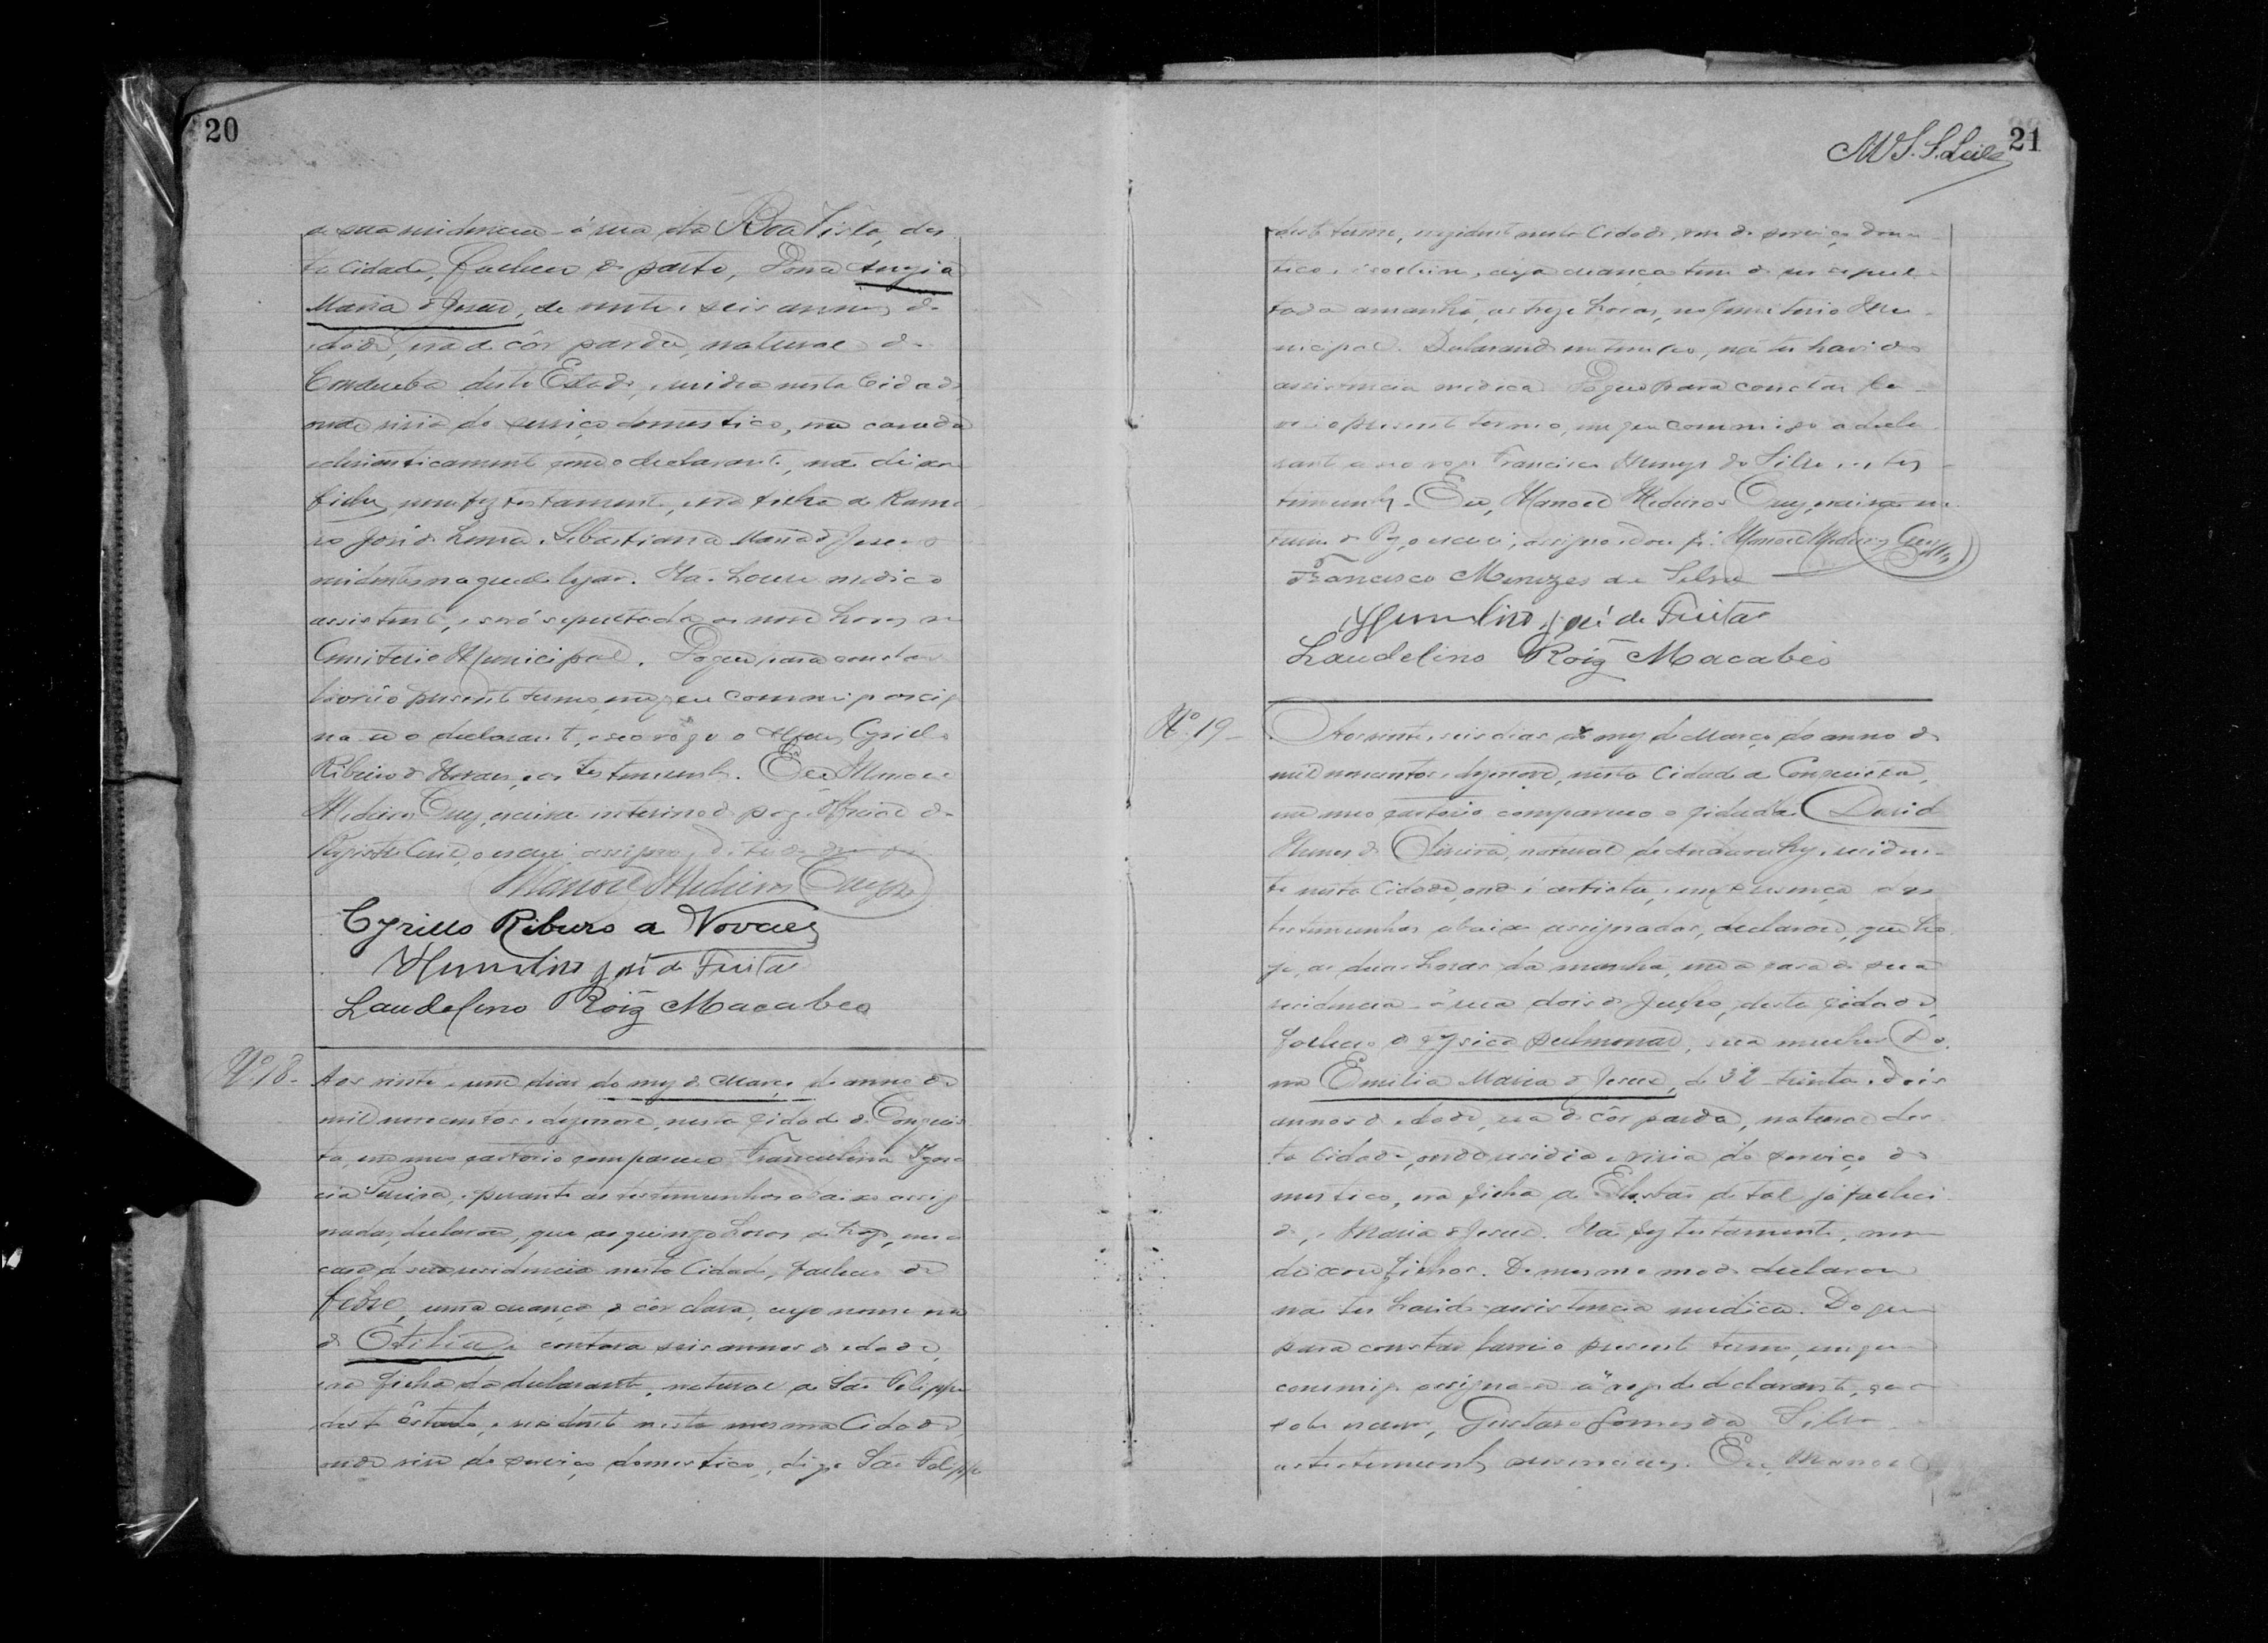 20
a sua residencia á rua da Boa Vista, des
ta cidade, falleceu de parto, Dona
Maria de Jesus, de vinte e seis annos de
edade, era de côr parda, natural de
Condeuba deste Estado, e residia nesta Cidade
onde vivia do serviço domestico, era casada
ecclesiasticamente com o declarante, não deixou
filhos, nem fez testamento, era filha de
José de e Sebastiana Maria de Jesus
residentes naquele logar. Não houve medico
assistente, e será sepultada as nove horas no
Cemiterio Municipal. Do que para constar
lavrei o presente termo, em que commigo assig
na o declarante, e seo rogo o Cyrillo
Ribeiro de Novaes, e as testemunhas. Eu Manoel
Medeiros Cruz, escrivão interino de paz e official do
Registro Civil, o escrevi assigno
Manoel Medeiros Cruz
Cyrillo Ribeiro de Novaes
José de Freitas
Laudelino Roiz Macabeo
Nº 18. Aos vinte e um dias do mez de Março do anno de
mil novecentos e dezenove, nesta Cidade de Conquis
ta, em meu cartorio compareceo Francelina
Pereira, e perante as testemunhas abaixo assig
nadas, declarou, que as quinze horas de hoje, em a
casa de sua residencia nesta Cidade, falleceo de
febre, uma creança de côr clara, cujo nome era
de Otilia e contava seis annos de edade,
era filha da declarante, natural de São Felippe
deste Estado, e residente nesta mesma Cidade,
onde vive do serviço domestico, digo São Felippe
21
M S. S. Leite
deste termo, residente nesta Cidade, vive do serviço domes
tico, e solteira, cuja creança tem de ser sepul
tada amanhã, as treze horas, no Cemiterio Mu
nicipal. Declarando não ter havido
assistencia medica. Do que para constar la
vrei o presente termo, em que commigo a decla
rante a seo rogo Francisco Menezes da Silva e as tes
temunhas. Eu, Manoel Medeiros Cruz, escrivão in
terino de Paz, o escrevi, assigno e dou fé. Manoel Medeiros Cruz
Francisco Menezes da Silva
José de Freitas
Laudelino Roiz Macabeo
Nº 19 Aos vinte e seis dias do mez de Março do anno de
mil novecentos e dezenove, nesta Cidade de Conquista,
em meo cartorio compareceo o cidadão David
Nunes de Oliveira, natural de Andarahy, e residen
te nesta Cidade, onde é artista, em presença das
testemunhas abaixo assignadas, declarou, que ho
je, as duas horas da manhã, em a casa de sua
residencia á rua dois de Julho, desta cidade,
falleceo de tysica pulmonar, sua mulher Do
na Emilia Maria de Jesus, de 32 trinta e dois
annos de edade, era de côr parda, natural des
ta Cidade, onde residia e vivia do serviço do
mestico, era filha de de tal já falleci
do, e Maria de Jesus. Não fez testamento, nem
deixou filhos. Do mesmo modo declarou
não ter havido assistencia medica. Do que
para constar lavrei o presente termo, em que
commigo assigna a rogo do declarante,
Gustavo Gomes da Silva
as testemunhas. Eu, Manoel